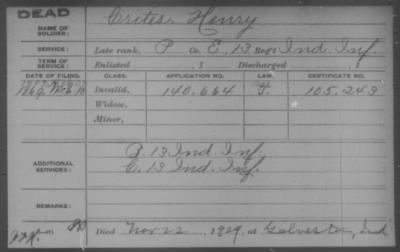 DEAD
NAME OF SOLDIER: Crites, Henry
SERVICE: Late rank, P Co. E, 13 Reg't Ind Inf.
TERM OF SERVICE: Enlisted , 1 Discharged
DATE OF FILING. CLASS. APPLICATION NO. LAW. CERTIFICATE NO.
Invalid, 140.664 105.249
Widow,
Minor,
ADDITIONAL SERVICES: B. 13 Ind. Inf.
E. 13 Ind. Inf.
REMARKS:
Died Nov 22, 1929, at Galveston, Ind